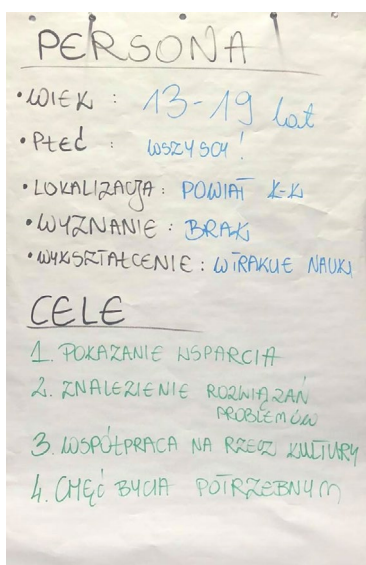 PERSONA
• WIEK : 13-19 lat
• Płeć : WSZYSCY !
• LOKALIZACJA : POWIAT K-K
• WYZNANIE : BRAK
• WYKSZTAŁCENIE : W TRAKCIE NAUKI
CELE
1. POKAZANIE WSPARCIA
2. ZNALEZIENIE ROZWIĄZAŃ
PROBLEMÓW
3. WSPÓŁPRACA NA RZECZ KULTURY
4. CHĘĆ BYCIA POTRZEBNYM